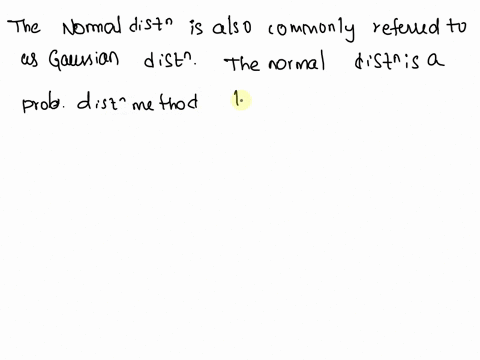 The Normal distⁿ is also commonly referred to
as Gaussian distⁿ. The normal distⁿ is a
prob. distⁿ method